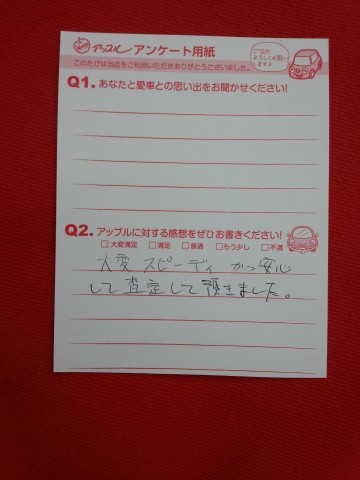 アップル アンケート用紙
このたびは当店をご利用いただきありがとうございました。
ご協力
よろしくお願い
します♪
Q1. あなたと愛車との思い出をお聞かせください!
Q2. アップルに対する感想をぜひお書きください!
□大変満足 □満足 □普通 □もう少し □不満
大変 スピーディ かつ安心
して査定して頂きました。